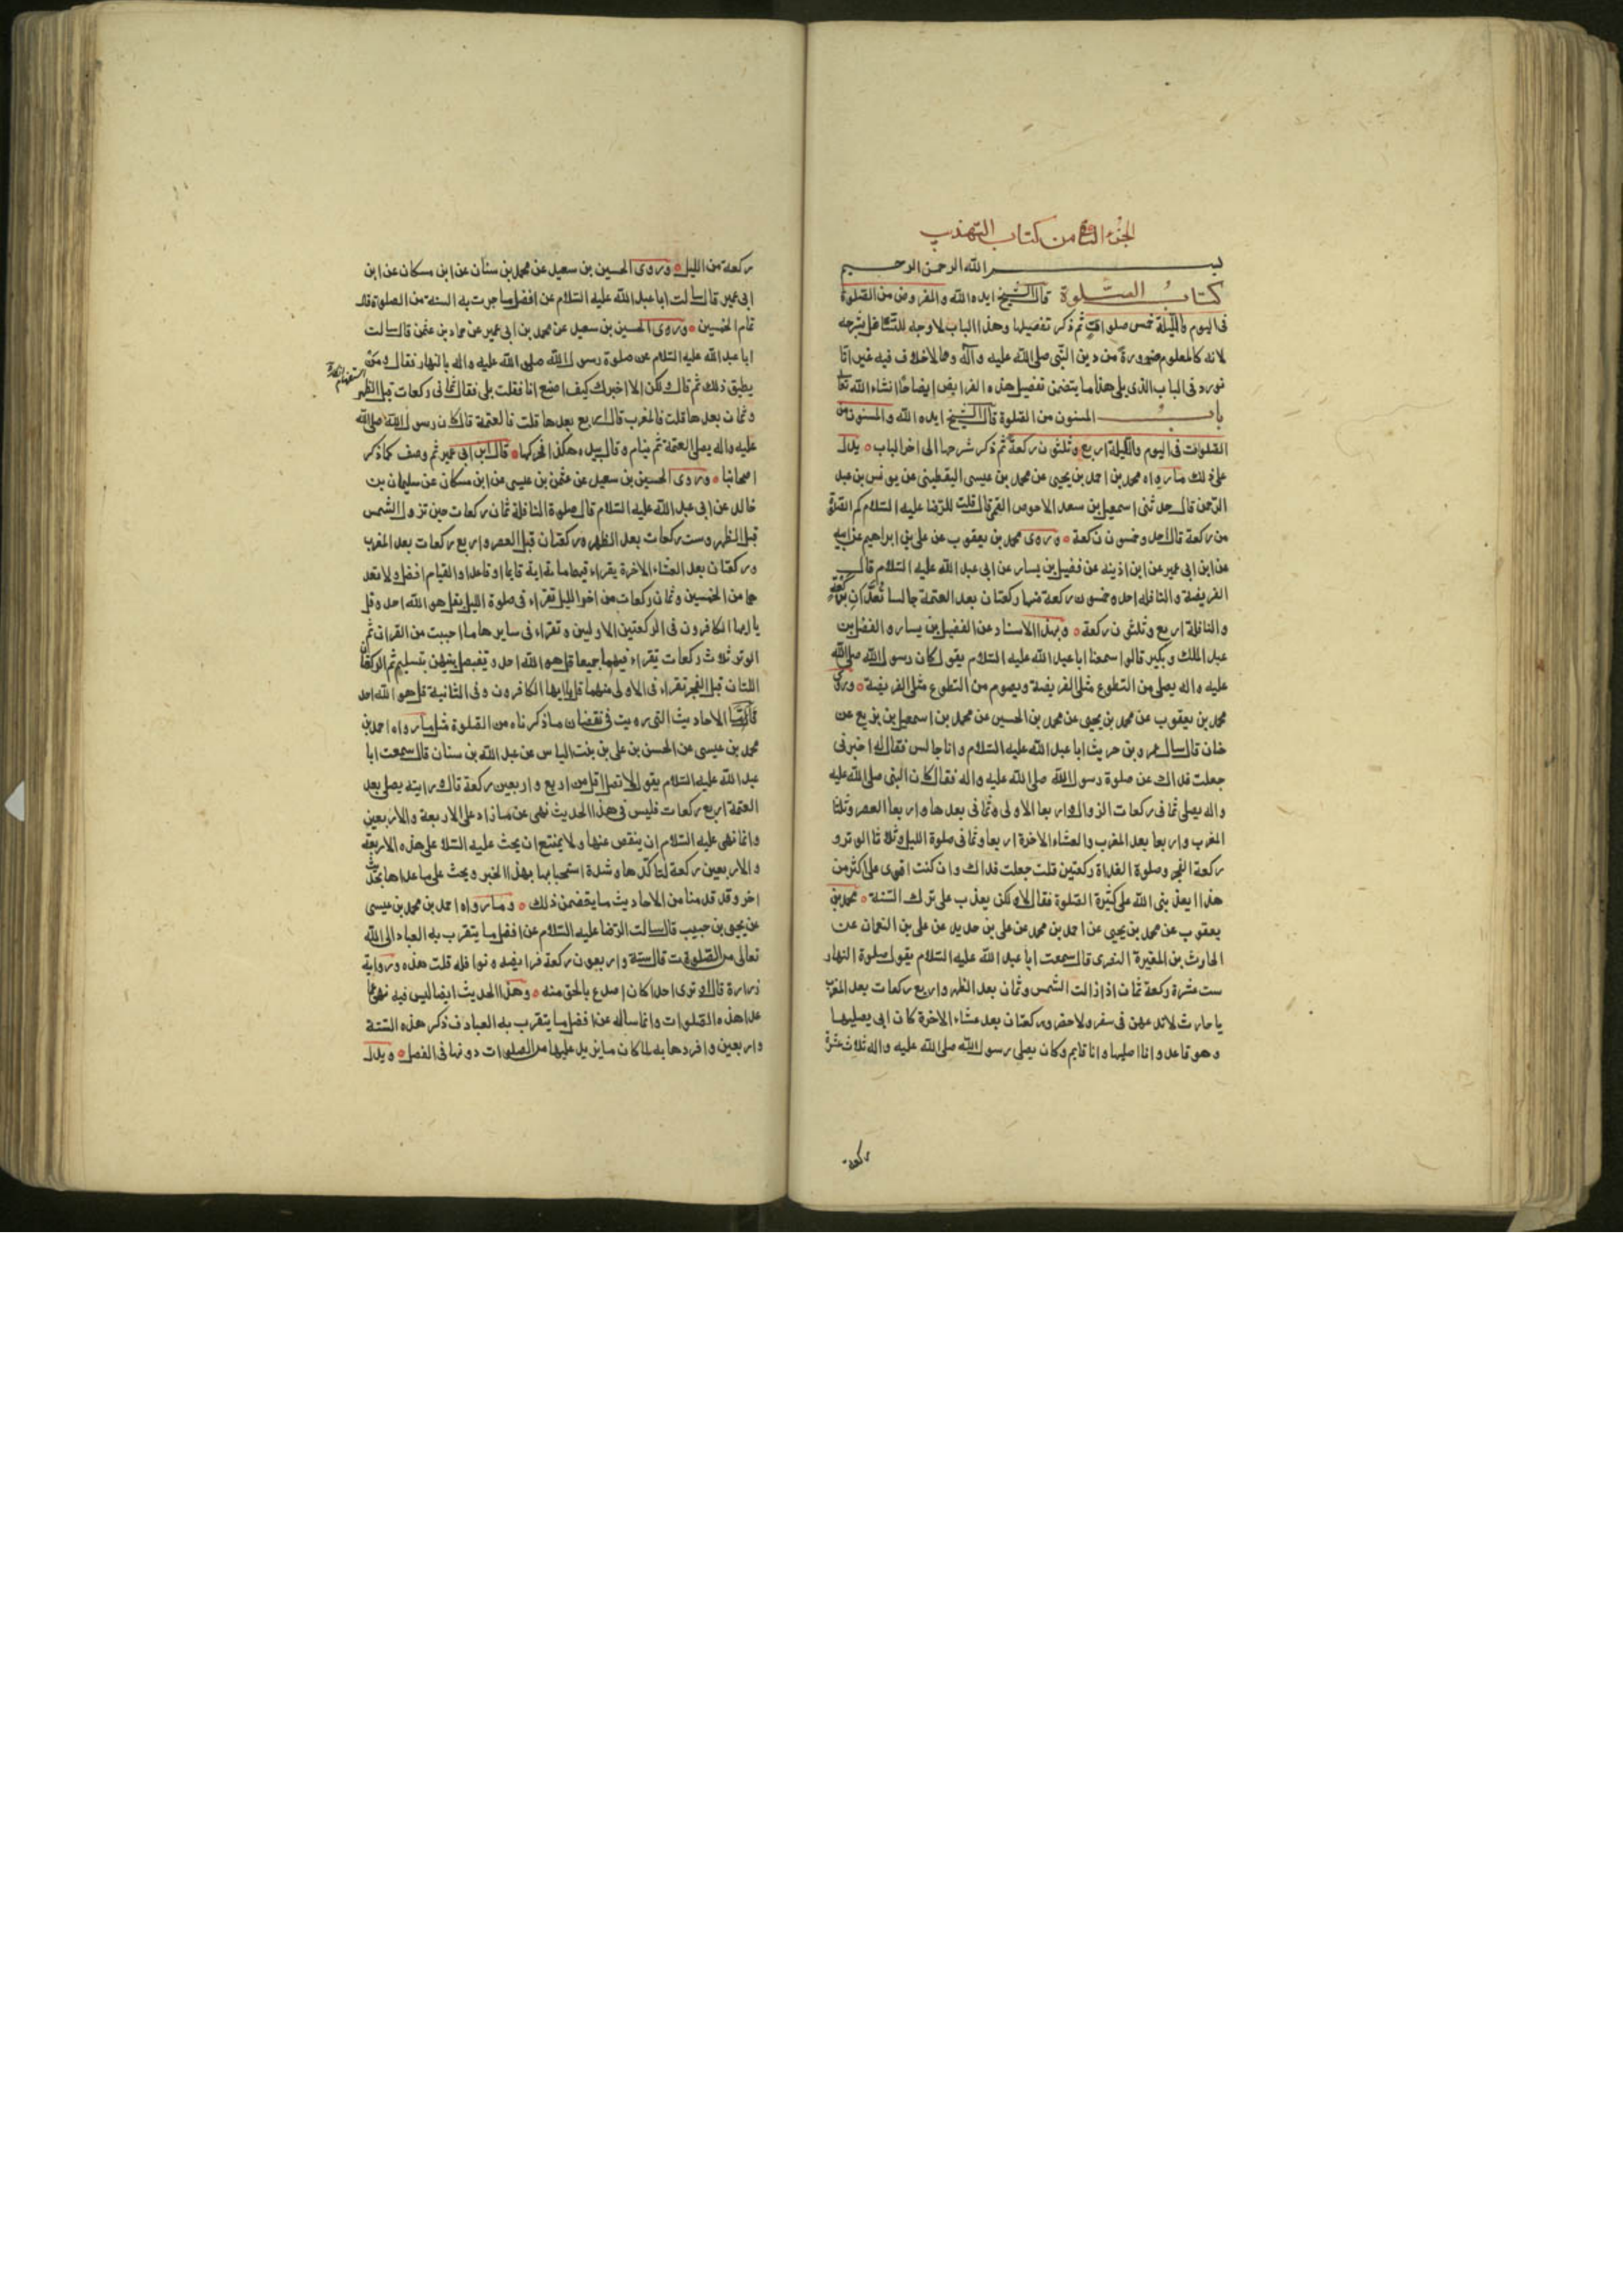 الجزء الثانى من كتاب التهذيب
بسم الله الرحمن الرحيم
كتاب الصلوة قال الشيخ ايده الله والمفروض من الصلوة
فى اليوم والليلة خمس صلوات ثم ذكر تفصيلها وهذا الباب لا وجه للتشاغل بشرحه
لانه كالمعلوم ضرورة من دين النبى صلى الله عليه وآله ومما لا خلاف فيه غير انا
نورد فى الباب الذى يلى هذا ما يتضمن تفصيل هذه الفرايض ايضاحا انشاء الله تعالى
باب المسنون من الصلوة قال الشيخ ايده الله والمسنون من
الصلوات فى اليوم والليلة اربع وثلثون ركعة ثم ذكر شرحها الى اخر الباب يدل
على ذلك ما رواه محمد بن احمد بن يحيى عن محمد بن عيسى اليقطينى عن يونس بن عبد
الرحمن قال حدثنى اسمعيل بن سعد الاحوص القمى قال قلت للرضا عليه السلام كم الصلوة
من ركعة قال احد وخمسون ركعة وروى محمد بن يعقوب عن على بن ابراهيم عن ابيه
عن ابن ابى عمير عن ابن اذينه عن فضيل بن يسار عن ابى عبد الله عليه السلام قال
الفريضة والنافله احد وخمسون ركعة منها ركعتان بعد العتمة جالسا تعدان بركعة
والنافلة اربع وثلثون ركعة وبهذا الاسناد عن الفضيل بن يسار والفضل بن
عبد الملك وبكير قالوا سمعنا ابا عبد الله عليه السلام يقول كان رسول الله صلى الله
عليه واله يصلى من التطوع مثلى الفريضة ويصوم من التطوع مثلى الفريضة وروى
محمد بن يعقوب عن محمد بن يحيى عن محمد بن الحسين عن محمد بن اسمعيل بن بزيع عن
حنان قال سال عمرو بن حريث ابا عبد الله عليه السلام وانا جالس فقال له اخبرنى
جعلت فداك عن صلوة رسول الله صلى الله عليه واله فقال كان النبى صلى الله عليه
واله يصلى ثمانى ركعات الزوال واربعا الاولى وثمانى بعدها واربعا العصر وثلثا
المغرب واربعا بعد المغرب والعشاء الاخرة اربعا وثمانى صلوة الليل وثلاثا الوتر و
ركعة الفجر وصلوة الغداة ركعتين قلت جعلت فداك وان كنت اقوى على اكثر من
هذا ايعذبنى الله على كثرة الصلوة فقال لا ولكن يعذب على ترك السنة محمد بن
يعقوب عن محمد بن يحيى عن احمد بن محمد عن على بن حديد عن على بن النعمان عن
الحارث بن المغيرة النصرى قال سمعت ابا عبد الله عليه السلام يقول صلوة النهار
ست عشرة ركعة ثمان اذا زالت الشمس وثمان بعد الظهر واربع ركعات بعد المغرب
يا حارث لا تدعهن فى سفر ولا حضر وركعتان بعد عشاء الاخرة كان ابى يصليها
وهو قاعد وانا اصليها وانا قايم وكان يصلى رسول الله صلى الله عليه واله ثلاث عشرة
ركعة
ركعة من الليل وروى الحسين بن سعيد عن محمد بن سنان عن ابن مسكان عن ابن
ابى عمير قال سالت ابا عبد الله عليه السلام عن افضل ما جرت به السنة من الصلوة قال
تمام الخمسين وروى الحسين بن سعيد عن محمد بن ابى عمير عن حماد بن عثمن قال سالت
ابا عبد الله عليه السلام عن صلوة رسول الله صلى الله عليه واله بالنهار فقال ومن
يطيق ذلك ثم قال ولكن الا اخبرك كيف اصنع انا فقلت بلى فقال ثمانى ركعات قبل الظهر
وثمان بعدها قلت فالمغرب قال اربع بعدها قلت فالعتمة قال كان رسول الله صلى الله
عليه واله يصلى العتمة ثم ينام وقال بيده هكذا فحركها قال ابن ابى عمير ثم وصف كما ذكر
اصحابنا وروى الحسين بن سعيد عن عثمن بن عيسى عن ابن مسكان عن سليمان بن
خالد عن ابى عبد الله عليه السلام قال صلوة النافلة ثمان ركعات حين تزول الشمس
قبل الظهر وست ركعات بعد الظهر وركعتان قبل العصر واربع ركعات بعد المغرب
وركعتان بعد العشاء الاخرة يقراء فيهما ماية اية قايما او قاعدا والقيام افضل ولا تعد
هما من الخمسين وثمان ركعات من اخر الليل تقراء فى صلوة الليل بقل هو الله احد وقل
يا ايها الكافرون فى الركعتين الاوليين وتقراء فى سايرها ما احببت من القران ثم
الوتر ثلاث ركعات يقراء فيهما جميعا قل هو الله احد وتفصل بينهن بتسليم ثم الركعتان
اللتان قبل الفجر تقراء فى الاولى منهما قل يا ايها الكافرون وفى الثانية قل هو الله احد
فاما الاحاديث التى رويت فى نقصان ما ذكرناه من الصلوة مثل ما رواه احمد بن
محمد بن عيسى عن الحسن بن على بن بنت الياس عن عبد الله بن سنان قال سمعت ابا
عبد الله عليه السلام يقول لا تصل اقل من اربع واربعين ركعة قال ورايته يصلى بعد
العتمة اربع ركعات فليس فى هذا الحديث نهى عن ما زاد على الاربعة والاربعين
وانما نهى عليه السلام ان ينقص عنها ولا يمتنع ان يحث عليه السلا على هذه الاربعة
والاربعين ركعة لتاكدها وشدة استحبابها بهذا الخبر ويحث على ما عداها بحديث
اخر وقد قدمنا من الاحاديث ما يتضمن ذلك وما رواه احمد بن محمد بن عيسى
عن يحيى بن حبيب قال سالت الرضا عليه السلام عن افضل ما يتقرب به العباد الى الله
تعالى من الصلوة قال ستة واربعون ركعة فرايضه ونوافله قلت هذه رواية
زرارة قال اوترى احدا كان اصدع بالحق منه وهذا الحديث ايضا ليس فيه نهى عما
عدا هذه الصلوات وانما ساله عن افضل ما يتقرب به العباد فذكر هذه الستة
واربعين وافردها به لما كان ما يزيد عليها من الصلوات دونها فى الفضل ويدل